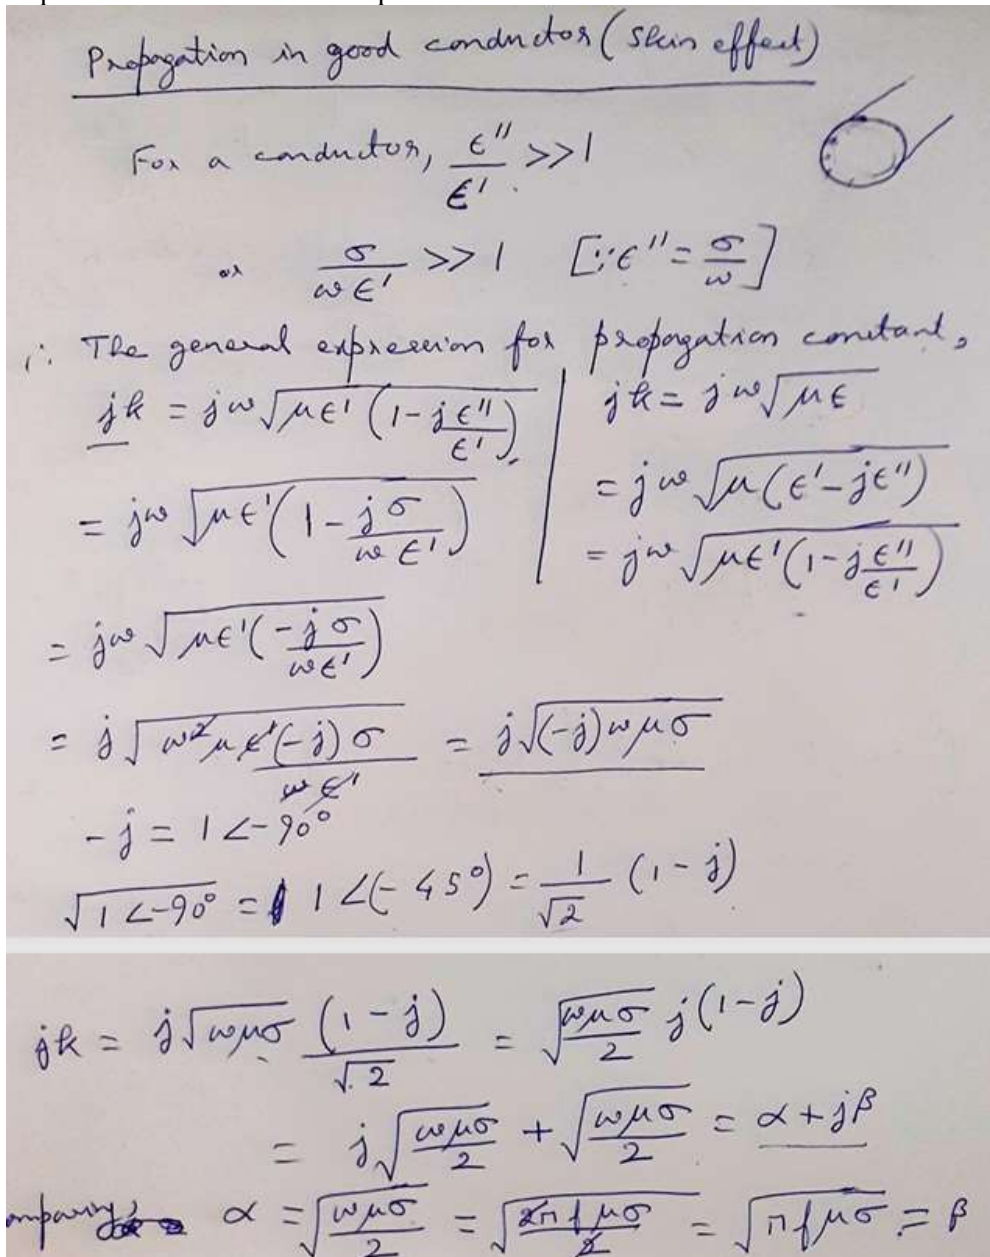 Propagation in good conductor (skin effect)
For a conductor, ε''/ε' >> 1
or σ/ωε' >> 1 [∵ ε'' = σ/ω]
∴ The general expression for propagation constant,
jk = jω√(με'(1 - jε''/ε'))
= jω√(με'(1 - jσ/ωε'))
jk = jω√(με)
= jω√(μ(ε' - jε''))
= jω√(με'(1 - jε''/ε'))
= jω√(με'(-jσ/ωε'))
= j√(ω²με'(-j)σ/ωε') = j√((-j)ωμσ)
-j = 1∠-90°
√(1∠-90°) = 1∠(-45°) = 1/√2 (1 - j)
jk = j√(ωμσ) (1 - j)/√2 = √(ωμσ/2) j(1 - j)
= j√(ωμσ/2) + √(ωμσ/2) = α + jβ
mparing, α = √(ωμσ/2) = √(2πfμσ/2) = √(πfμσ) = β